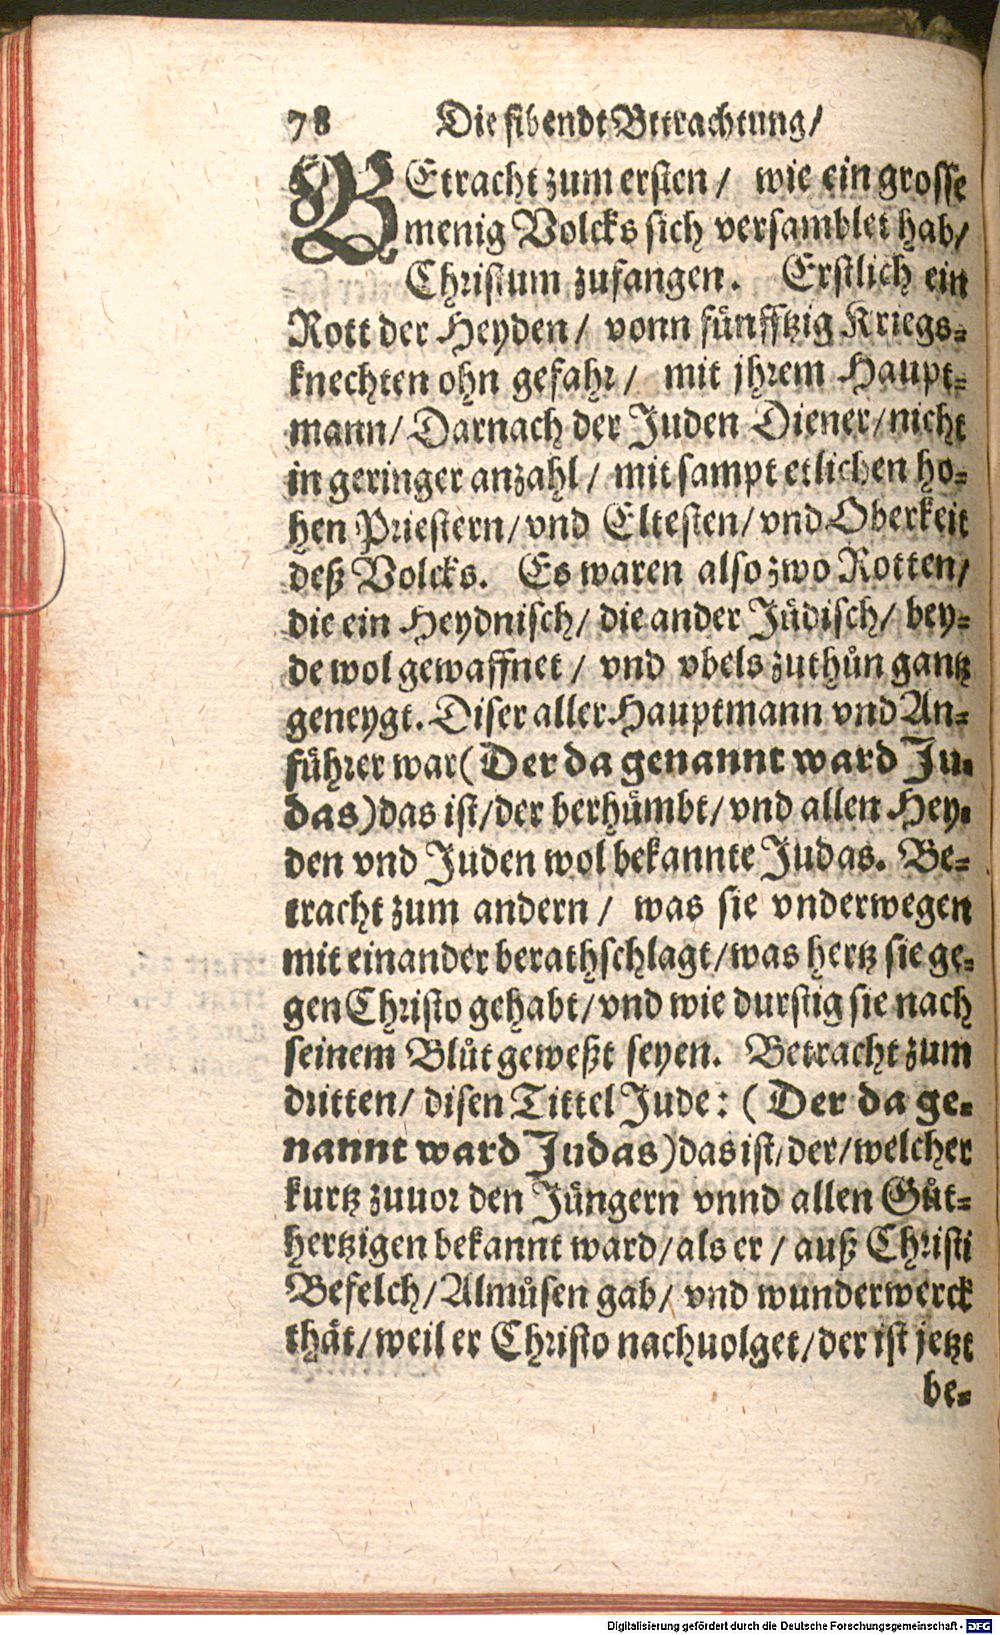 78 Die sibendt Betrachtung/
BEtracht zum ersten / wie ein grosse
menig Volcks sich versamblet hab/
Christum zufangen. Erstlich ein
Rott der Heyden / vonn fünfftzig Kriegs⸗
knechten ohn gefahr / mit jhrem Haupt⸗
mann / Darnach der Juden Diener / nicht
in geringer anzahl / mit sampt etlichen ho⸗
hen Priestern / vnd Eltesten / vnd Oberkeit
deß Volcks. Es waren also zwo Rotten /
die ein Heydnisch / die ander Jüdisch / bey⸗
de wol gewaffnet / vnd vbels zuthůn gantz
geneygt. Diser aller Hauptmann vnd An⸗
führer war (Der da genannt ward Ju⸗
das) das ist / der berhümbt / vnd allen Hey⸗
den vnd Juden wol bekannte Judas. Be⸗
tracht zum andern / was sie vnderwegen
mit einander berathschlagt / was hertz sie ge⸗
gen Christo gehabt / vnd wie durstig sie nach
seinem Blůt geweßt seyen. Betracht zum
dritten / disen Tittel Jude: (Der da ge⸗
nannt ward Judas) das ist / der / welcher
kurtz zuuor den Jüngern vnnd allen Gůt⸗
hertzigen bekannt ward / als er / auß Christi
Befelch / Almůsen gab / vnd wunderwerck
thät / weil er Christo nachuolget / der ist jetzt
be⸗
Digitalisierung gefördert durch die Deutsche Forschungsgemeinschaft - DFG